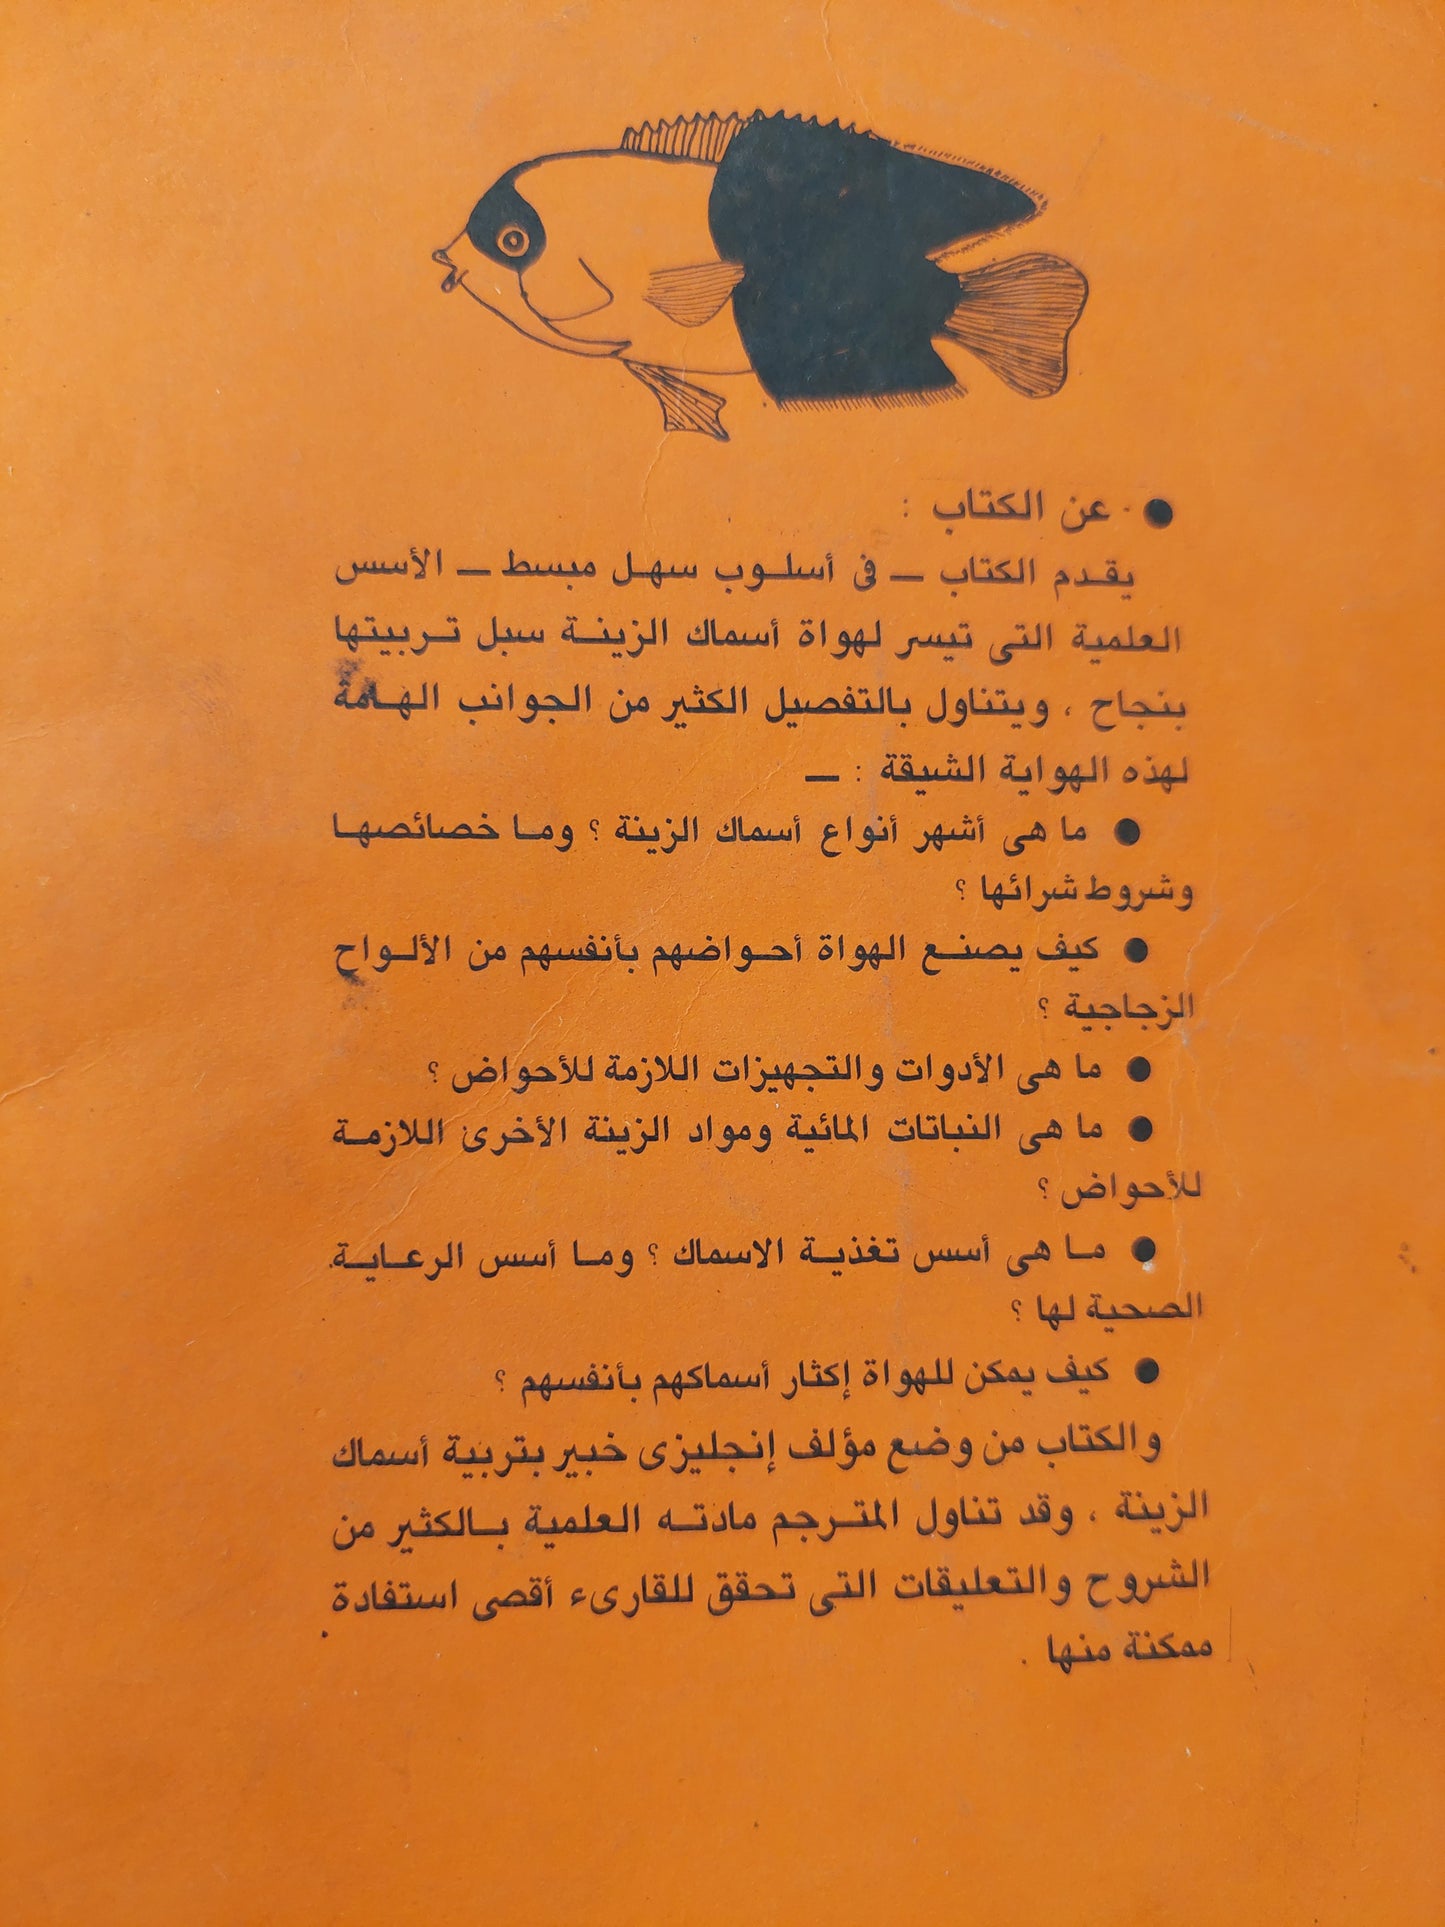 ● عن الكتاب :
يقدم الكتاب — فى أسلوب سهل مبسط — الأسس
العلمية التى تيسر لهواة أسماك الزينة سبل تربيتها
بنجاح ، ويتناول بالتفصيل الكثير من الجوانب الهامة
لهذه الهواية الشيقة : —
● ما هى أشهر أنواع أسماك الزينة ؟ وما خصائصها
وشروط شرائها ؟
● كيف يصنع الهواة أحواضهم بأنفسهم من الألواح
الزجاجية ؟
● ما هى الأدوات والتجهيزات اللازمة للأحواض ؟
● ما هى النباتات المائية ومواد الزينة الأخرى اللازمة
للأحواض ؟
● ما هى أسس تغذية الاسماك ؟ وما أسس الرعاية
الصحية لها ؟
● كيف يمكن للهواة إكثار أسماكهم بأنفسهم ؟
والكتاب من وضع مؤلف إنجليزى خبير بتربية أسماك
الزينة ، وقد تناول المترجم مادته العلمية بالكثير من
الشروح والتعليقات التى تحقق للقارىء أقصى استفادة
ممكنة منها .